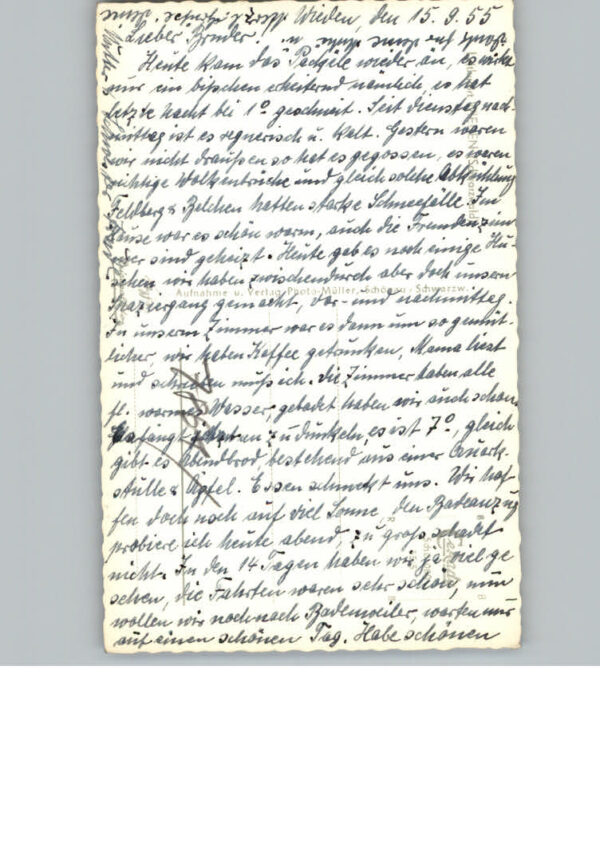 Wieden, den 15.9.55
Lieber Bruder!
Heute kam das Paket wieder an, es wirkt
nur ein bißchen erheiternd nämlich, es hat
letzte Nacht bei 1° geschneit. Seit Dienstag nach-
mittag ist es regnerisch u. kalt. Gestern waren
wir nicht draußen so hat es gegossen, es waren
richtige Wolkenbrüche und gleich solche Abkühlung
Feldberg & Belchen hatten starke Schneefälle. Im
Hause war es schön warm, auch die Fremdenzim-
mer sind geheizt. Heute gab es noch einige Hu-
schen wir haben zwischendurch aber doch unsern
Aufnahme u. Verlag Photo-Müller, Schönau/Schwarzw.
Spaziergang gemacht, vor- und nachmittag.
In unserm Zimmer war es dann um so gemüt-
licher, wir haben Kaffee getrunken, Mama liest
und schreiben muß ich. Die Zimmer haben alle
fl. warmes Wasser, gebadet haben wir auch schon.
fängt an zu dunkeln, es ist 7°, gleich
gibt es Abendbrod, bestehend aus einer Quark-
stulle & Apfel. Essen schmeckt uns. Wir hof-
fen doch noch auf viel Sonne, den Badeanzug
probiere ich heute abend, zu groß schadet
nicht. In den 14 Tagen haben wir ja viel ge
sehen, die Fahrten waren sehr schön, nun
wollen wir noch nach Badenweiler, warten nur
auf einen schönen Tag. Habe schönen